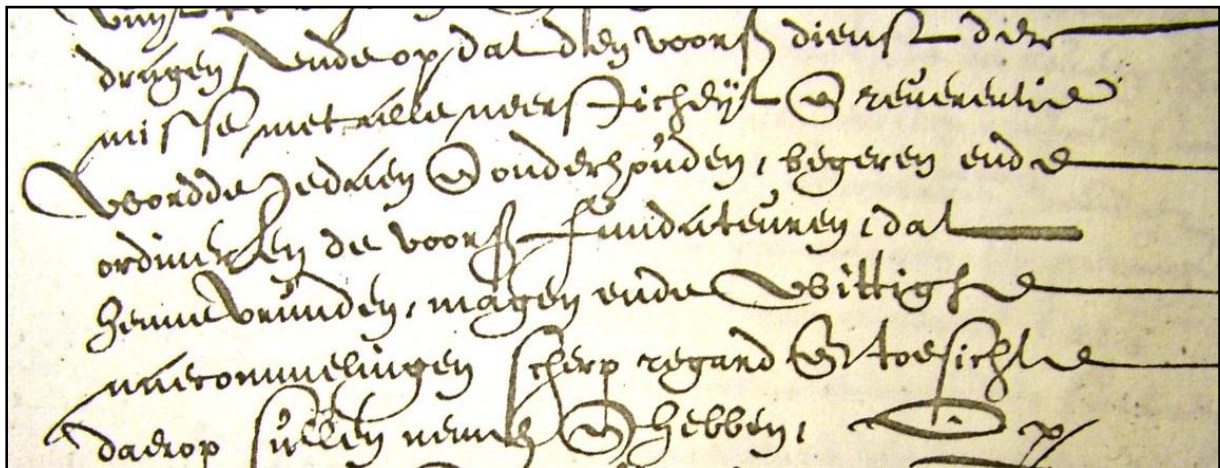 dragen, Ende op dat den voors dienst der
misse met alle neerstichÿt en reverentie
wordde gedaen en onderhouden, begeren ende
ordineren de voors fundateuren, dat
henne vrunden, magen ende wittighe
naecommelingen scherp regard en toesicht
daerop sullen nemen en hebben,